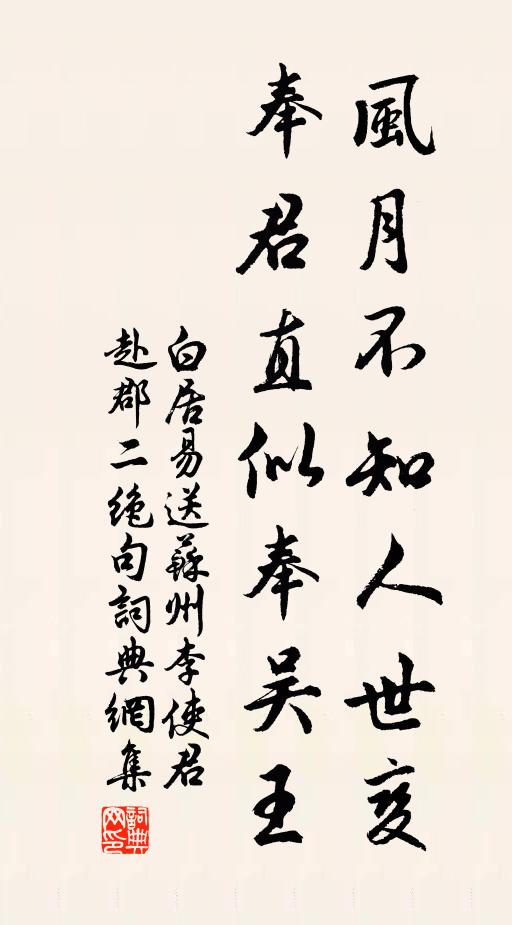 風月不知人世变
奉君直似奉吴王
白居易送蘇州李使君
赴郡二绝句詞典網集
詞典
网印